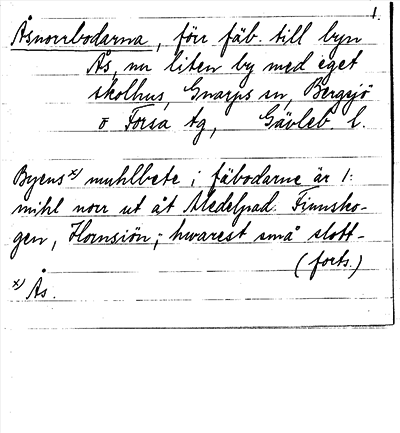 1.
Åsnorrbodarna, förr fäb. till byn
Ås, nu liten by med eget
skolhus, Gnarps sn, Bergsjö
o Forsa tg, Gävleb. l.
Byens x) muhlbete i fäbodarne är 1:
mihl norr ut åt Medelpad. Finnsko-
gen, Hornsiön, hwarest små slott-
(forts.)
x) Ås.